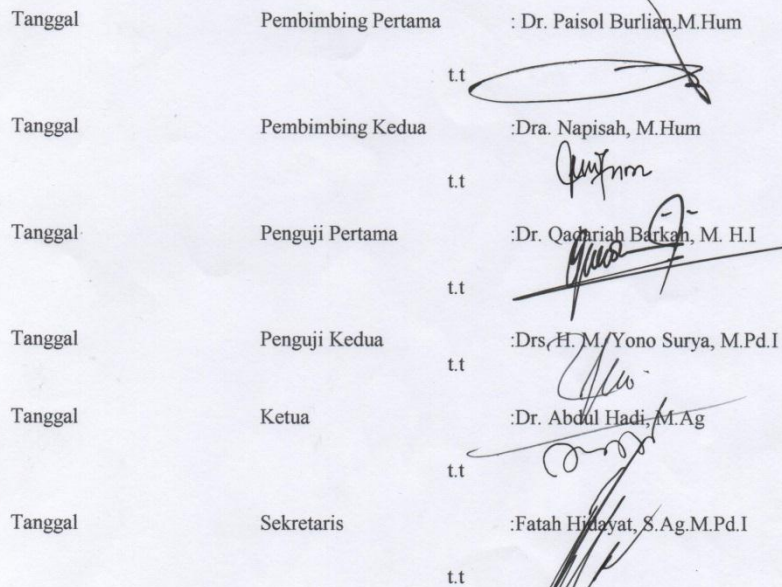 Tanggal Pembimbing Pertama : Dr. Paisol Burlian,M.Hum
t.t
Tanggal Pembimbing Kedua :Dra. Napisah, M.Hum
t.t
Tanggal Penguji Pertama :Dr. Qadariah Barkah, M. H.I
t.t
Tanggal Penguji Kedua :Drs. H. M. Yono Surya, M.Pd.I
t.t
Tanggal Ketua :Dr. Abdul Hadi, M.Ag
t.t
Tanggal Sekretaris :Fatah Hidayat, S.Ag.M.Pd.I
t.t